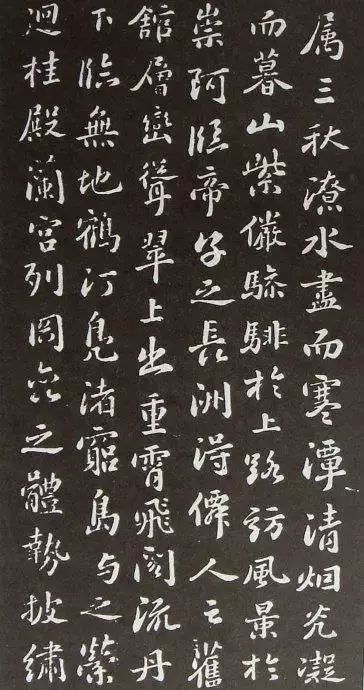 属三秋潦水盡而寒潭清烟光凝
而暮山紫儼驂騑於上路訪風景於
崇阿臨帝子之長洲得僊人之舊
舘層巒聳翠上出重霄飛閣流丹
下臨無地鶴汀鳧渚窮島与之縈
迴桂殿蘭宮列岡巒之體勢披繡